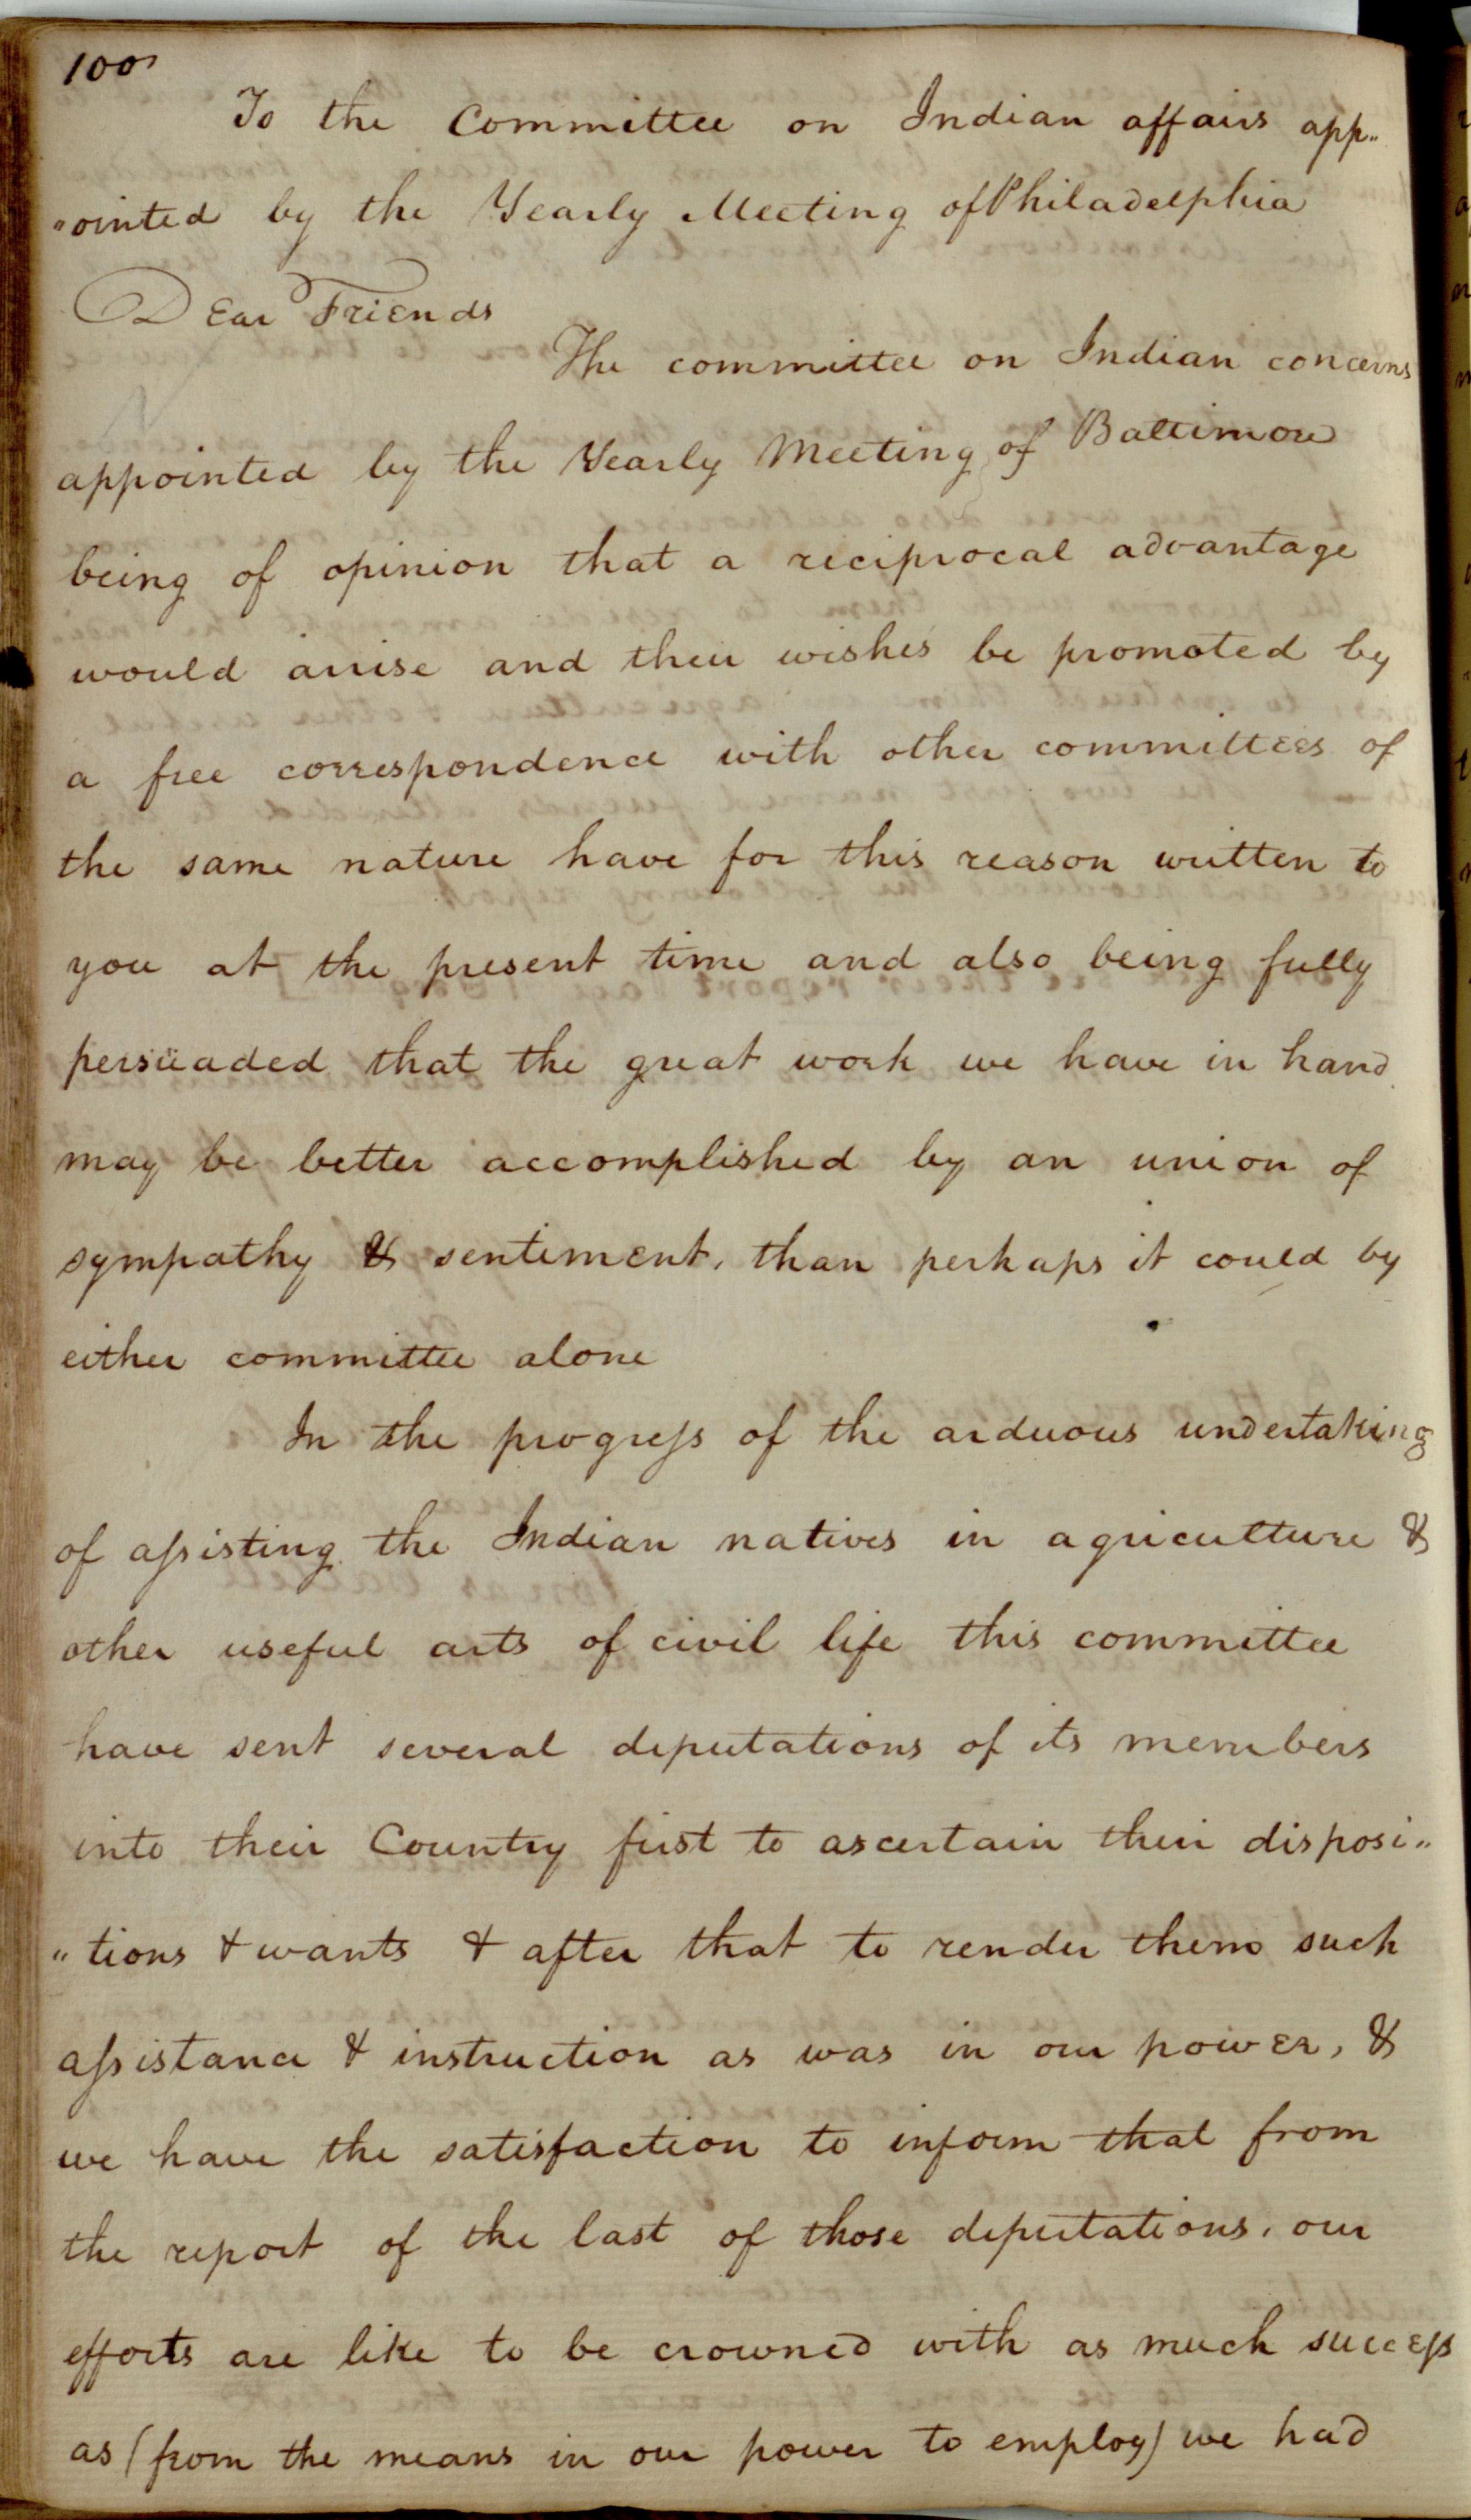 100
To the Committee on Indian affairs app„
„ointed by the Yearly Meeting of Philadelphia
Dear Friends
The committee on Indian concerns
appointed by the Yearly Meeting of Baltimore
being of opinion that a reciprocal advantage
would arrise and their wishes be promoted by
a free correspondence with other committees of
the same nature have for this reason written to
you at the present time and also being fully
persuaded that the great work we have in hand
may be better accomplished by an union of
sympathy & sentiment, than perhaps it could by
either committee alone
In the progreſs of the arduous undertaking
of aſsisting the Indian natives in agriculture &
other useful arts of civil life this committee
have sent several deputations of its members
into their Country first to ascertain their disposi„
„tions & wants & after that to render them such
aſsistance & instruction as was in our power, &
we have the satisfaction to inform that from
the report of the last of those deputations, our
efforts are like to be crowned with as much succeſs
as (from the means in our power to employ) we had